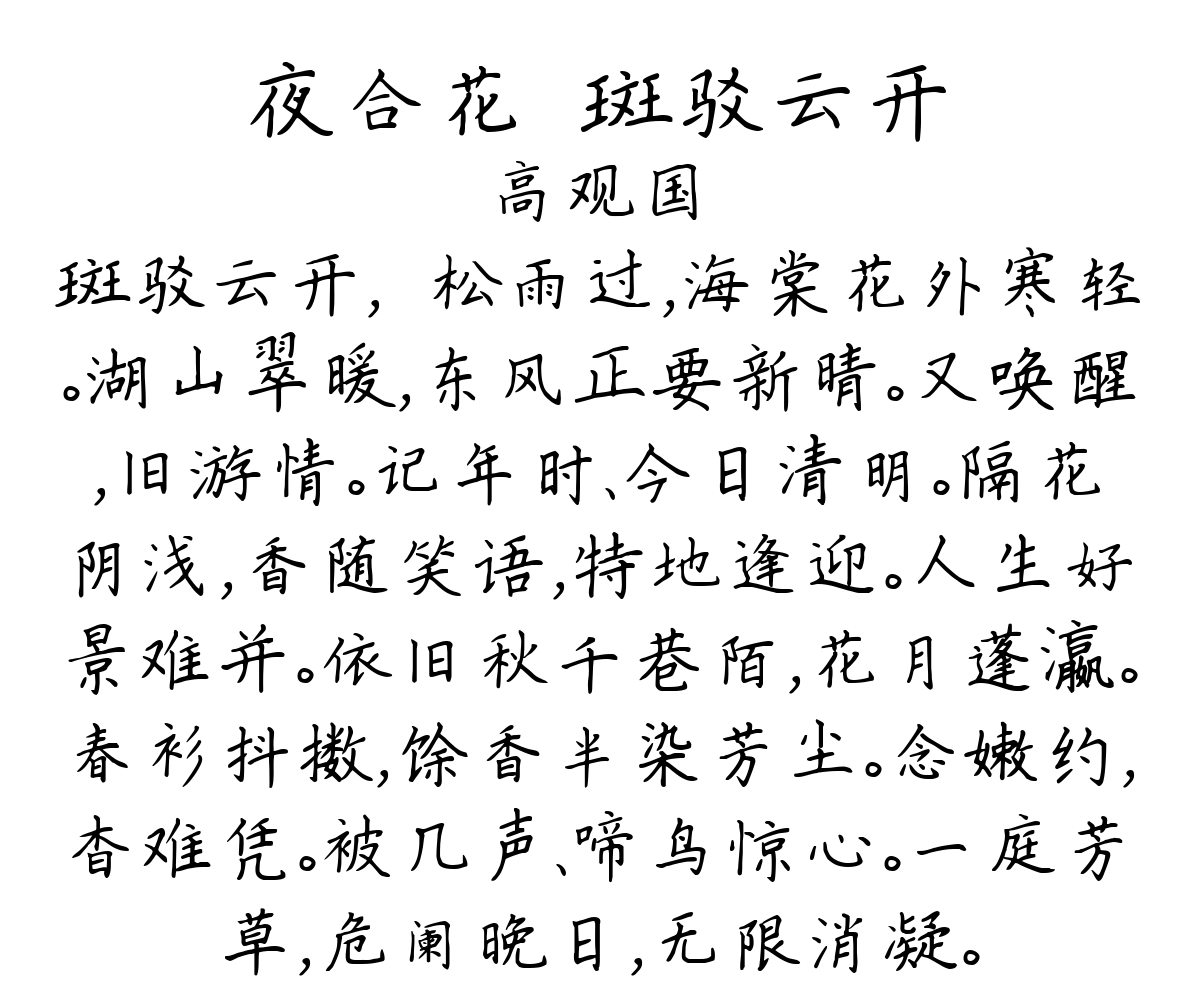 夜合花 斑驳云开
高观国
斑驳云开，松雨过，海棠花外寒轻
。湖山翠暖，东风正要新晴。又唤醒
，旧游情。记年时、今日清明。隔花
阴浅，香随笑语，特地逢迎。人生好
景难并。依旧秋千巷陌，花月蓬瀛。
春衫抖擞，馀香半染芳尘。念嫩约，
杳难凭。被几声、啼鸟惊心。一庭芳
草，危阑晚日，无限消凝。